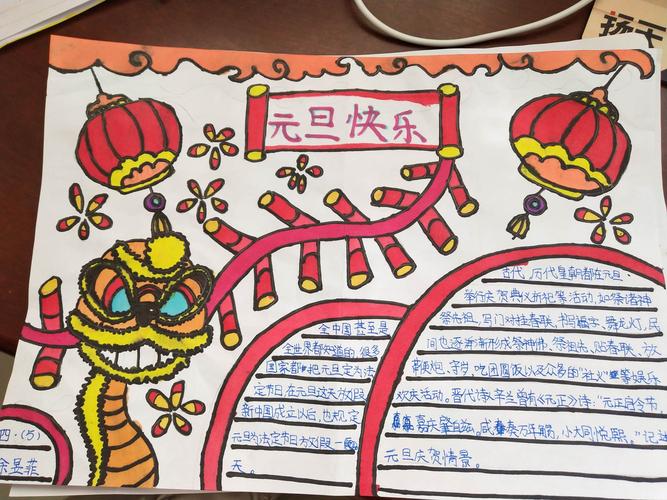 元旦快乐
全中国甚至是
全世界都知道的，很多
国家都把元旦定为法
定节日，在元旦这天放假
新中国成立以后，也规定
元旦为法定节日方放假一
天。
古代，历代皇朝都在元旦，
举行庆贺典仪祈祀等活动，如祭诸神
祭先祖，写门对挂春联，书写福字、舞龙灯，民
间也逐渐渐形成祭神佛、祭祖先、贴春联、放
鞭炮、守岁、吃团圆饭以及众多的“社火”等娱乐
欢庆活动。晋代诗人辛兰曾有《元正》诗：“元正启令节
嘉庆肇自兹。咸奏万年觞，小大同悦熙。”记述
元旦庆贺情景。
四·(5)
余昱菲